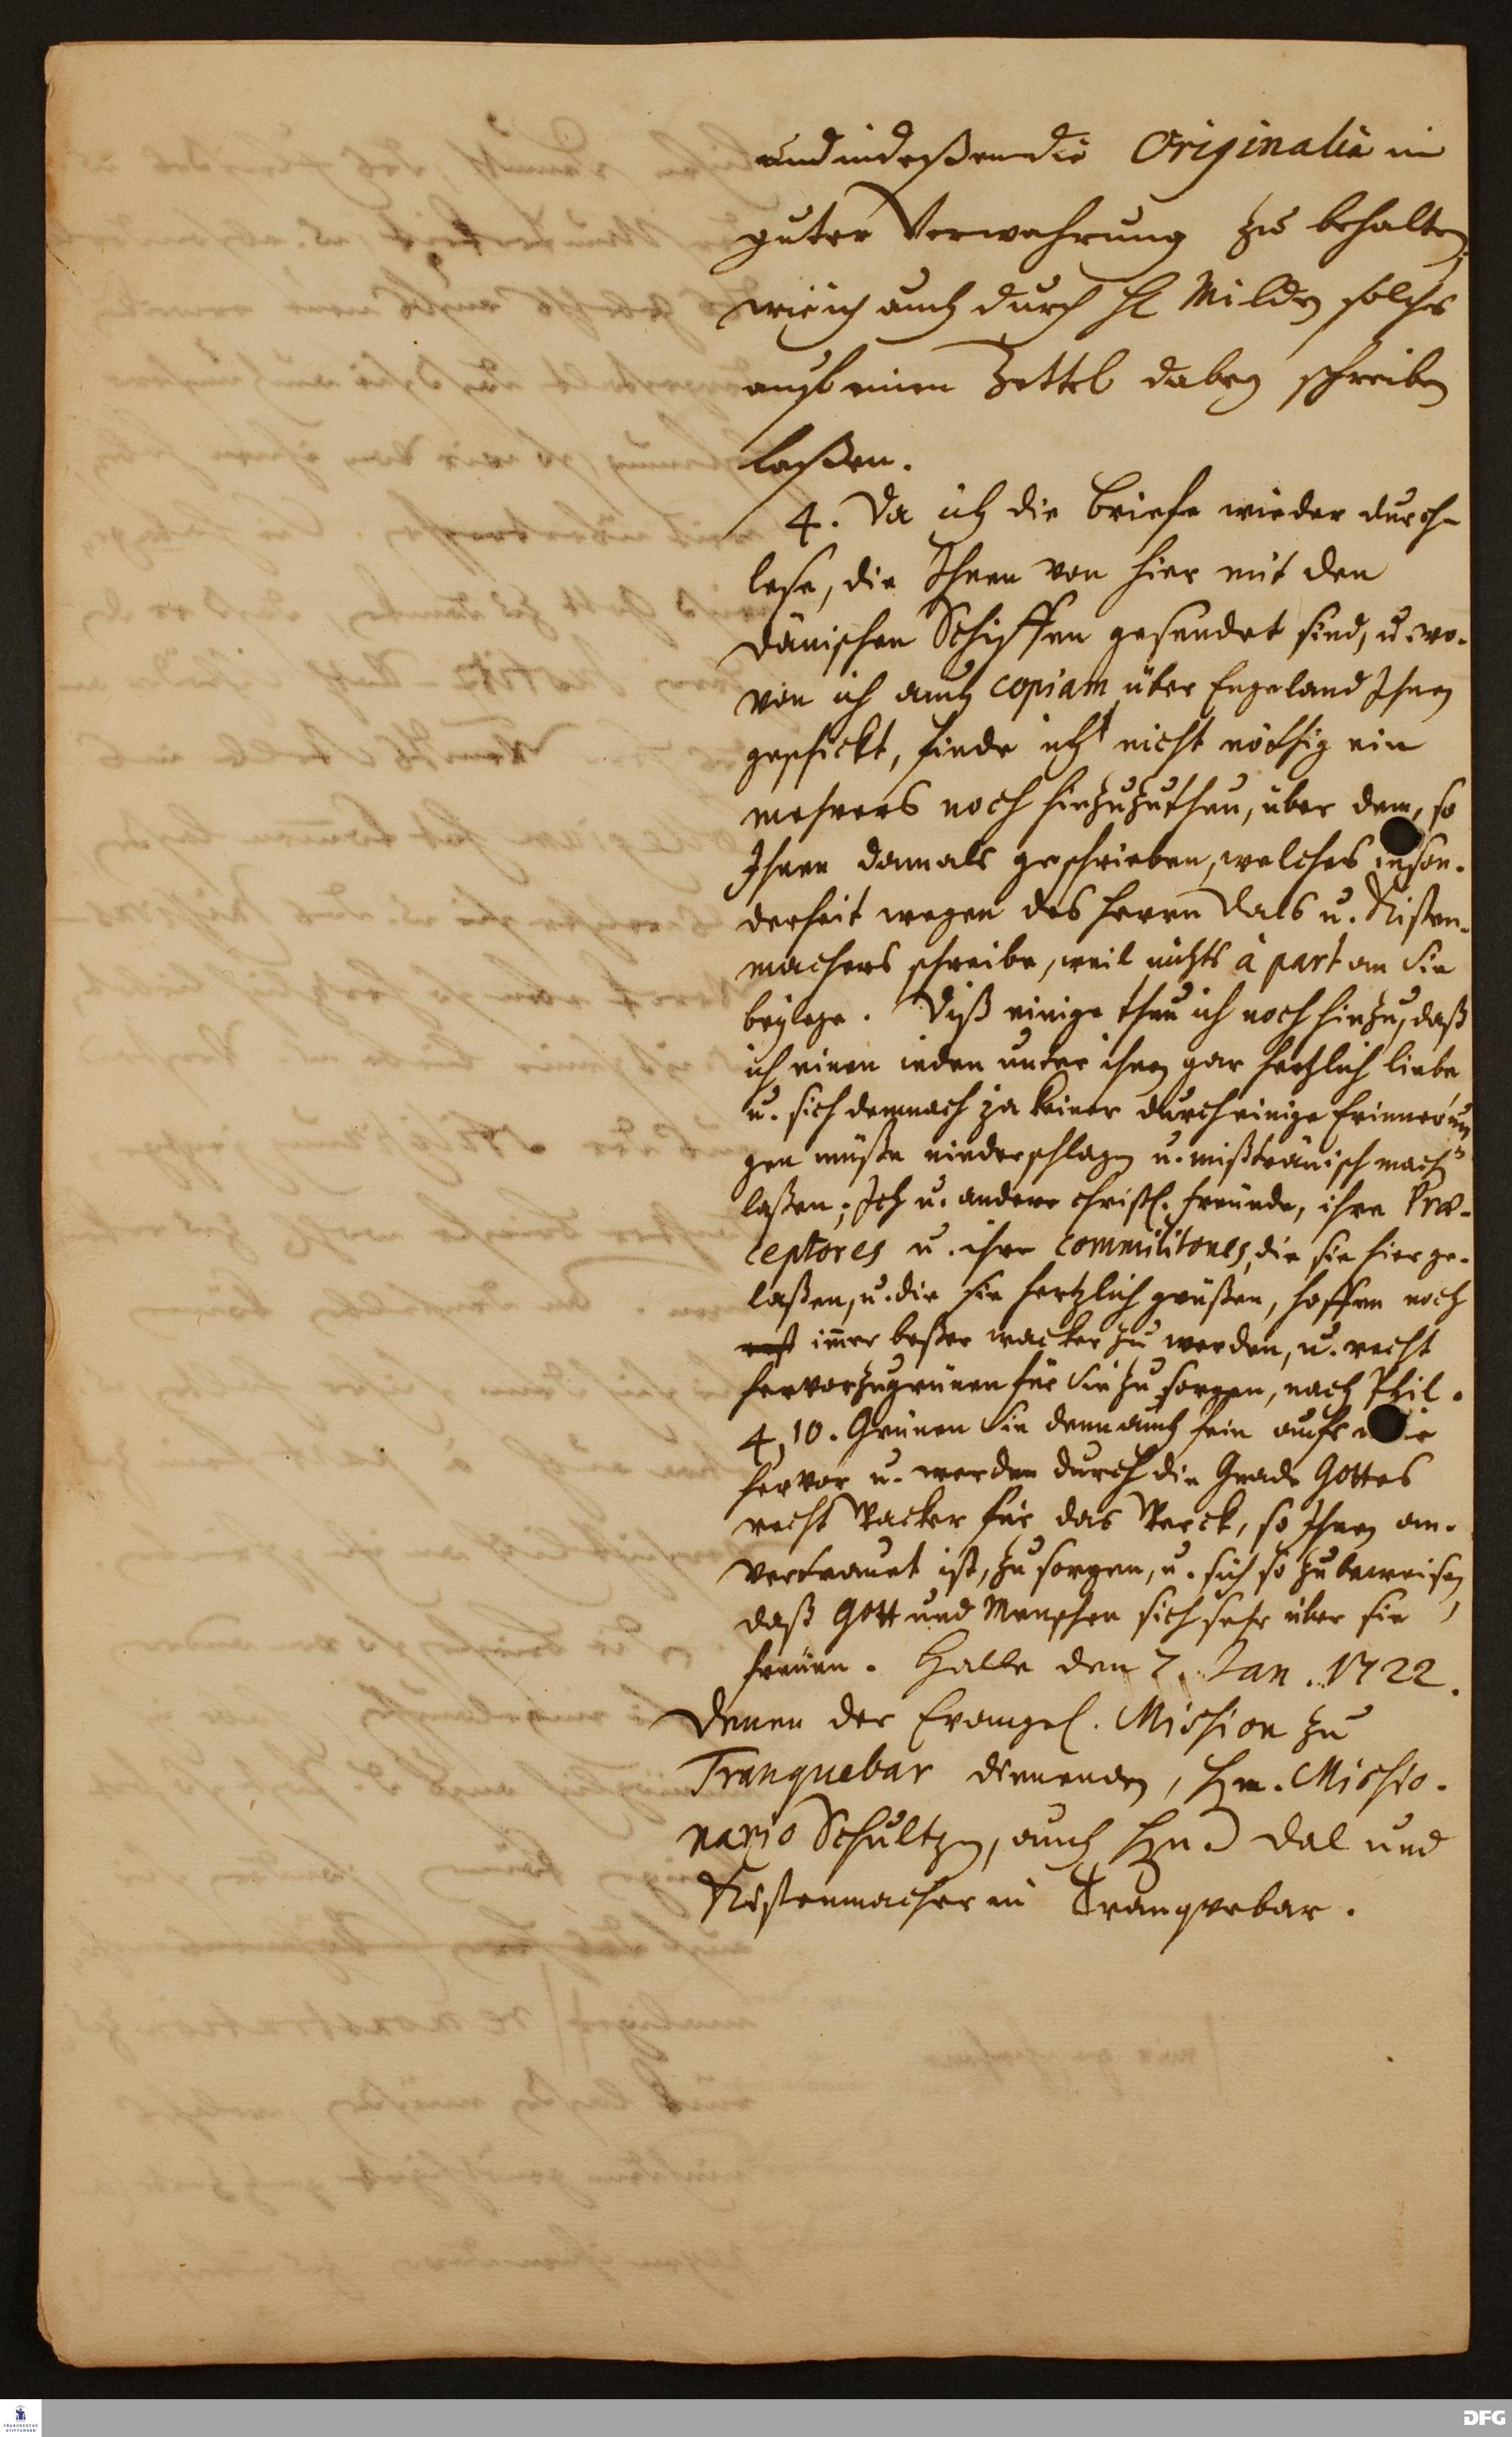 und indeßen die Originalia in
guter Verwahrung zu behalten,
wie ich auch durch H Milden solches
auf einen Zettel dabey schreiben
laßen.
4. Da ich die briefe wieder durch-
lese, die Ihnen von hier mit den
dänischen Schiffen gesendet sind, u. wo-
von ich auch copiam über Engeland Ihnen
geschickt, finde ich nicht nöthig ein
mehrers noch hinzuzuthun, über dem, so
Ihnen damals geschrieben, welches inson-
derheit wegen des Herrn Dals u. Kisten-
machers schreibe, weil nichts à part an Sie
beylege. Diß einige thue ich noch hinzu, daß
ich einen ieden unter ihnen gar hertzlich liebe
u. sich demnach ja keiner durch einige Erinnerun
gen müße niederschlagen u. mißträuisch machen
laßen; Ich u. andere christl. freunde, ihre Præ-
ceptores u. ihre commilitones, die sie hier ge-
laßen, u. die sie hertzlich grüßen, hoffen noch
immer beßer wacker zu werden, u. recht
hervorzugrünen für Sie zu sorgen, nach Phil.
4, 10. Grünen Sie denn auch fein aufs
hervor u. werden durch die Gnade Gottes
recht Wacker für das Werck, so Ihnen an-
vertrauet ist, zu sorgen, u. sich so zu beweisen,
daß Gott und Menschen sich sehr über sie
freuen. Halle den 7. Jan. 1722.
Denen der Evangel. Mission zu
Tranquebar dienenden, Hrn. Missio-
nario Schultzen, auch Hrn. Dal und
Kistenmacher in Tranqvebar.
FRANCKESCHE
STIFTUNGEN
DFG